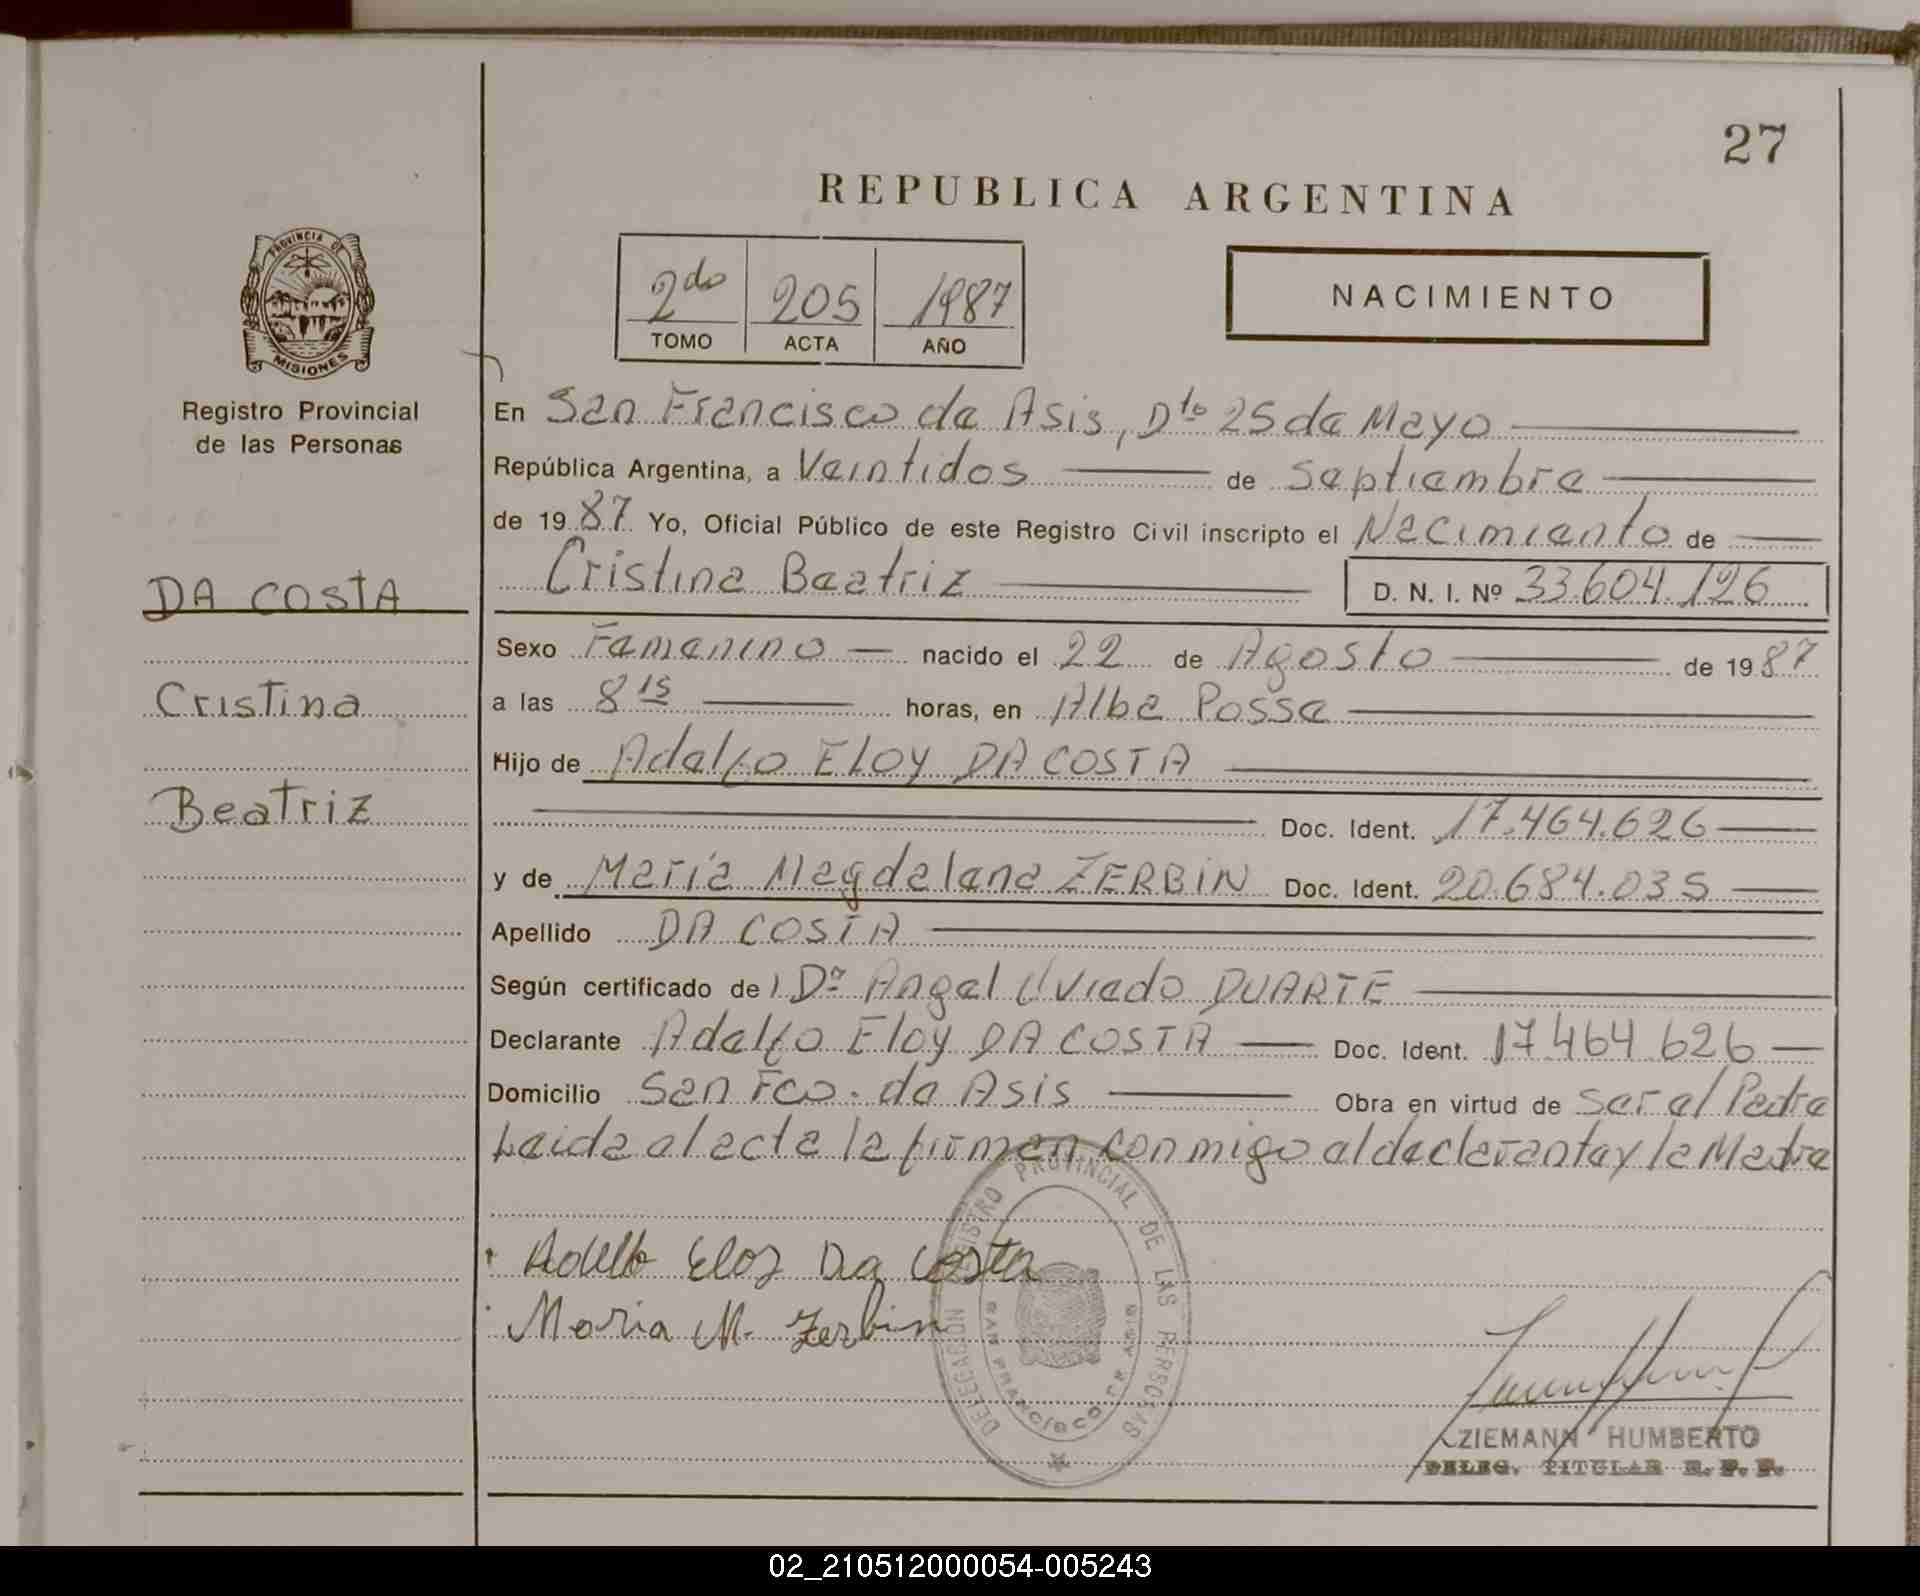 27
REPUBLICA ARGENTINA
PROVINCIA DE
MISIONES
Registro Provincial
de las Personas
2do 205 1987
TOMO ACTA AÑO
NACIMIENTO
DA COSTA
Cristina
Beatriz
En San Francisco de Asis, Dto 25 de Mayo
República Argentina, a Veintidos de Septiembre
de 1987 Yo, Oficial Público de este Registro Civil inscripto el Nacimiento de
Cristina Beatriz D. N. I. Nº 33.604.126
Sexo Femenino nacido el 22 de Agosto de 1987
a las 8 15 horas, en Alba Posse
Hijo de Adelfo Eloy DA COSTA
Doc. Ident. 17.464.626
y de María Magdalena ZERBIN Doc. Ident. 20.684.035
Apellido DA COSTA
Según certificado de Dr Angel Uviedo DUARTE
Declarante Adelfo Eloy DA COSTA Doc. Ident. 17.464.626
Domicilio San Fco. de Asis Obra en virtud de ser el Padre
Leida el acta la firman conmigo el declarante y la Madre
Adelfo Eloy Da Costa
Maria M. Zerbin
DELEGACION REGISTRO PROVINCIAL DE LAS PERSONAS
SAN FRANCISCO DE ASIS
ZIEMANN HUMBERTO
DELEG. TITULAR R. P. P.
02_210512000054-005243